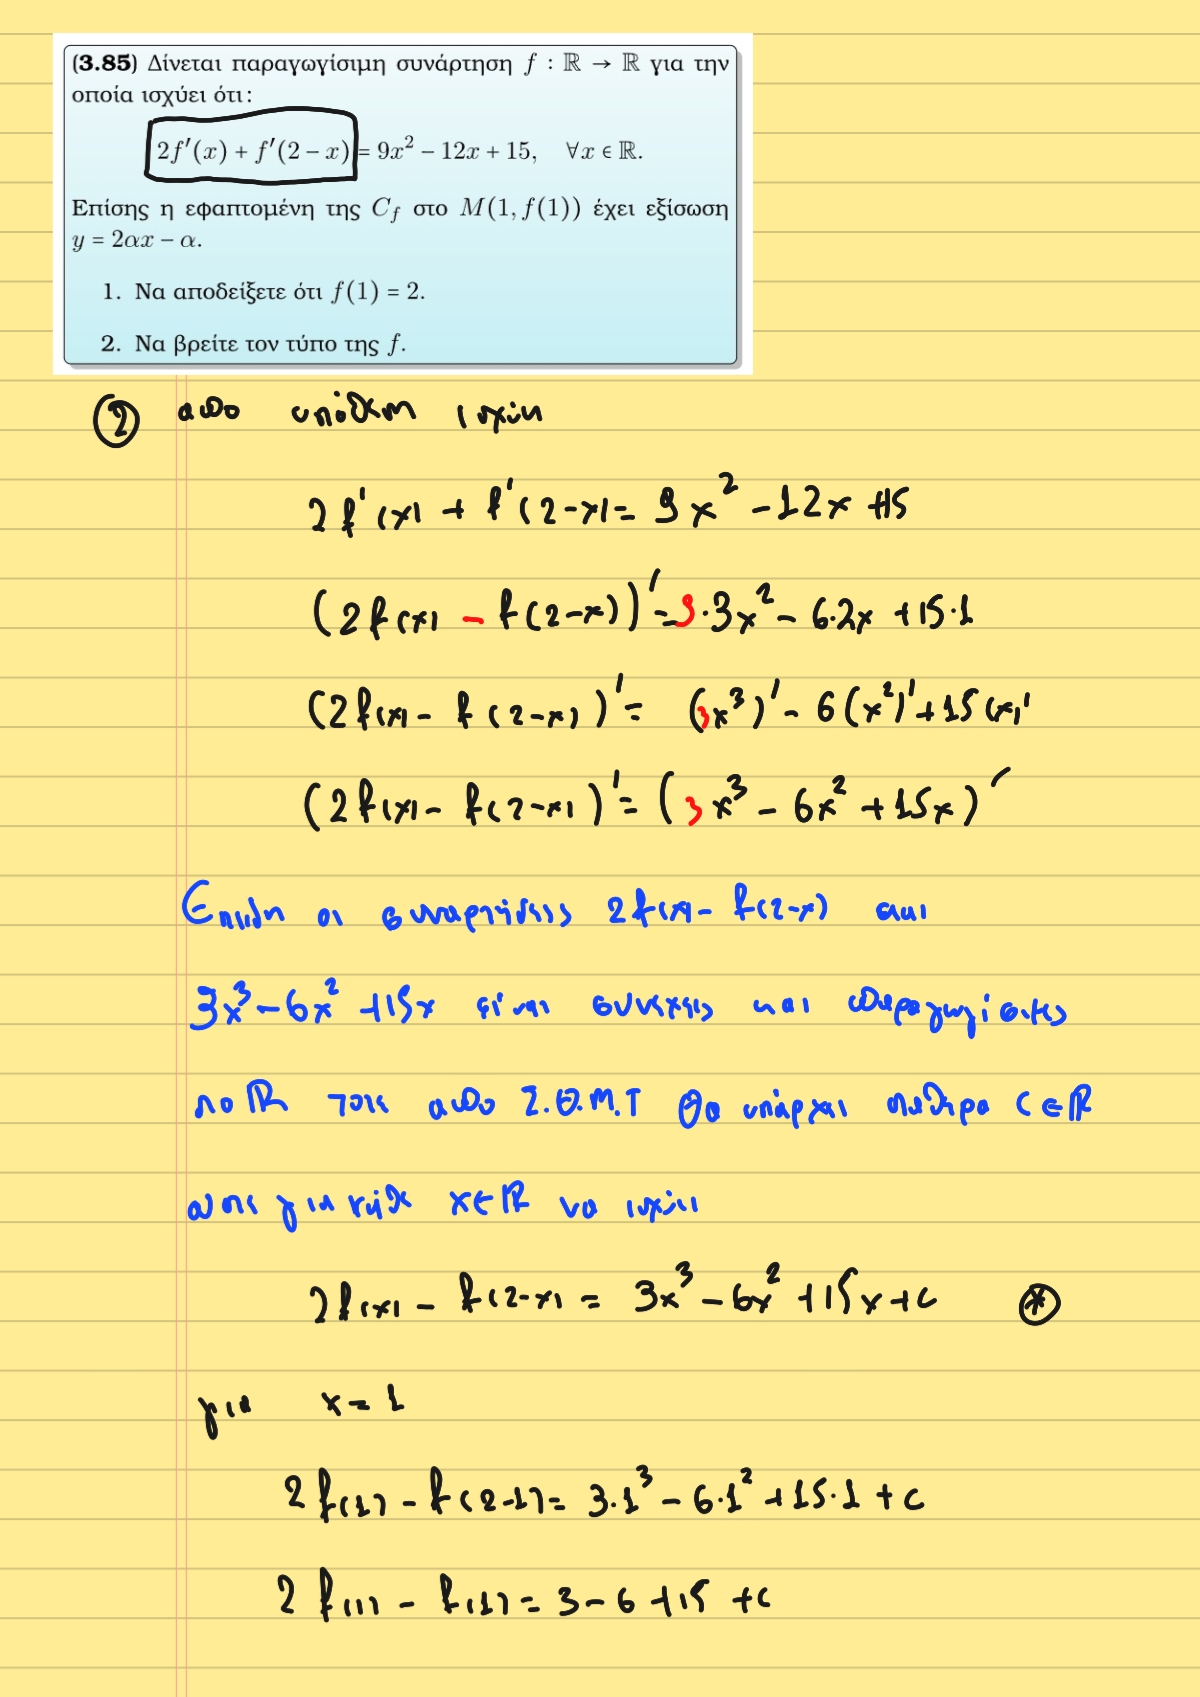 (3.85) Δίνεται παραγωγίσιμη συνάρτηση f : ℝ → ℝ για την
οποία ισχύει ότι:
2f′(x) + f′(2 − x) = 9x² − 12x + 15, ∀x ∈ ℝ.
Επίσης η εφαπτομένη της C_f στο M(1, f(1)) έχει εξίσωση
y = 2αx − α.
1. Να αποδείξετε ότι f(1) = 2.
2. Να βρείτε τον τύπο της f.
② απο υπόθεση ισχύει
2f′(x) + f′(2-x) = 9x² - 12x + 15
(2f(x) - f(2-x))′ = 3·3x² - 6·2x + 15·1
(2f(x) - f(2-x))′ = (3x³)′ - 6(x²)′ + 15(x)′
(2f(x) - f(2-x))′ = (3x³ - 6x² + 15x)′
Επειδη οι συναρτήσεις 2f(x) - f(2-x) και
3x³ - 6x² + 15x είναι συνεχεις και παραγωγίσιμες
στο ℝ τοτε απο Σ.Θ.Μ.Τ θα υπάρχει σταθερα c ∈ ℝ
ωστε για κάθε x ∈ ℝ να ισχύει
2f(x) - f(2-x) = 3x³ - 6x² + 15x + c ⊛
για x = 1
2f(1) - f(2-1) = 3·1³ - 6·1² + 15·1 + c
2f(1) - f(1) = 3 - 6 + 15 + c